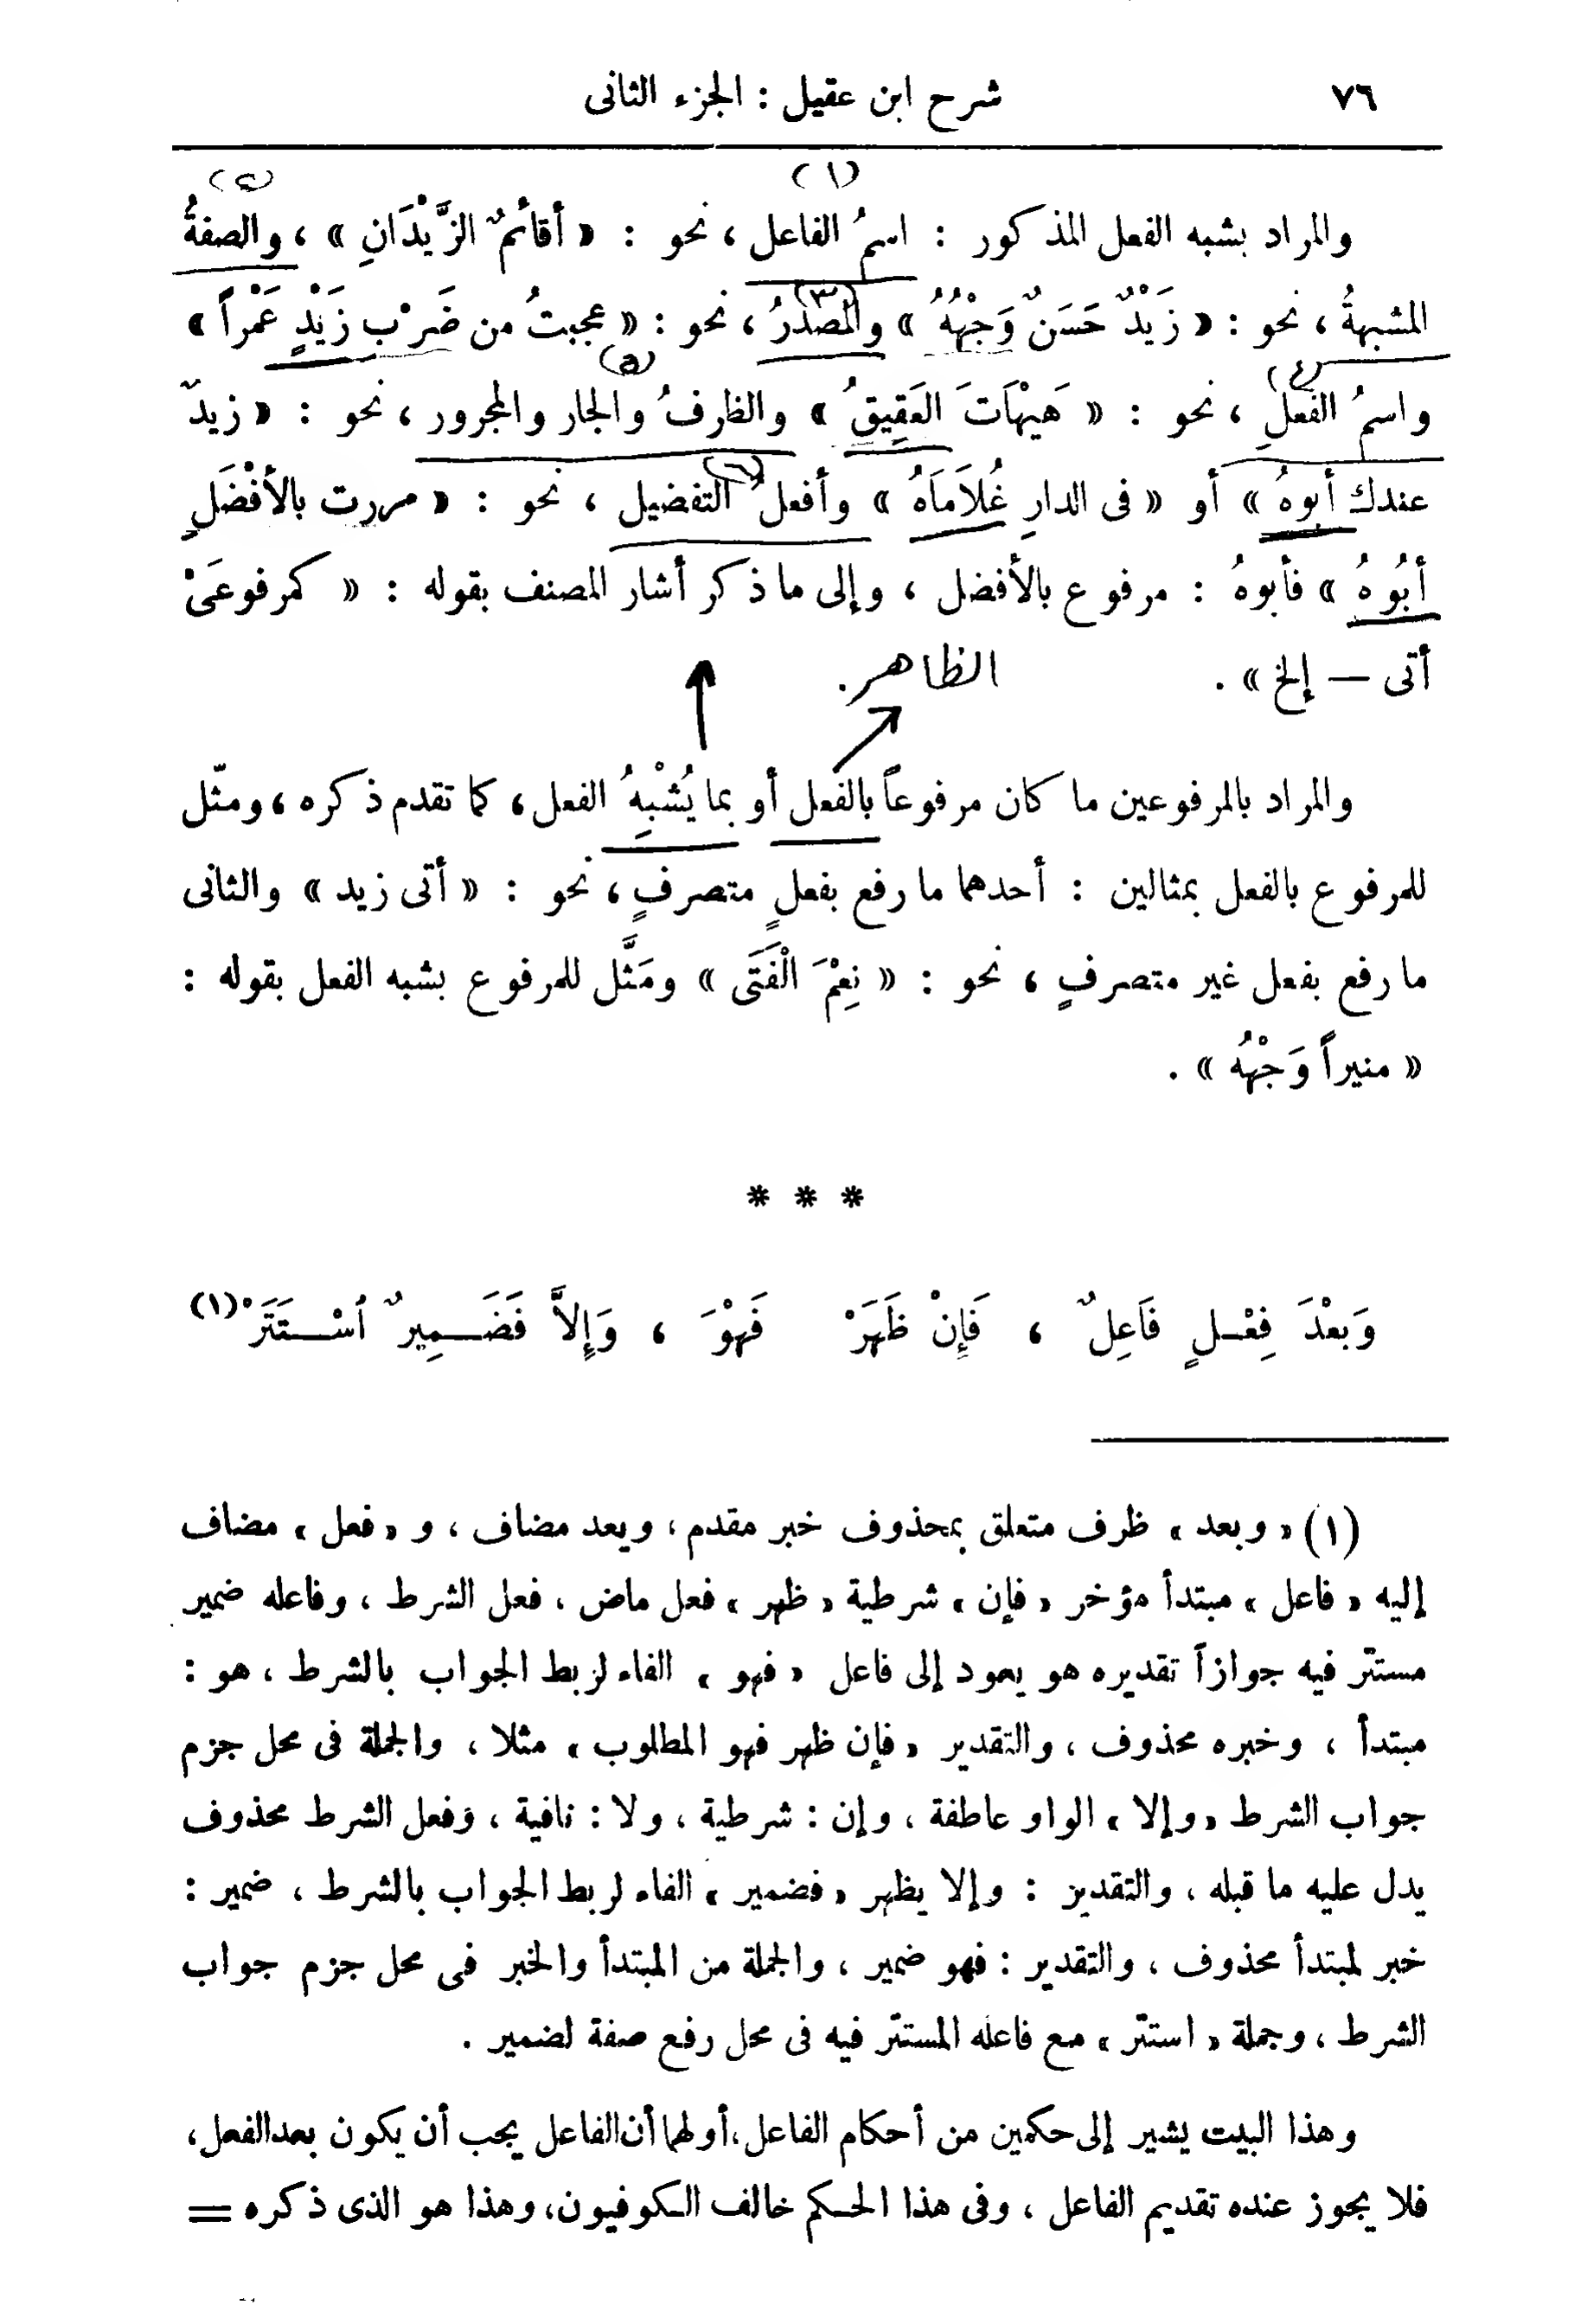 ٧٦
شرح ابن عقيل : الجزء الثانى
(١) (٢)
والمراد بشبه الفعل المذكور : اسمُ الفاعل ، نحو : « أقائمٌ الزَّيْدَانِ » ، والصفةُ
(٣)
المشبهةُ ، نحو : « زَيْدٌ حَسَنٌ وَجْهُهُ » والمصدرُ ، نحو : « عجبتُ من ضَرْبِ زَيْدٍ عَمْراً »
(٤) (٥)
واسمُ الفعلِ ، نحو : « هَيْهَاتَ العَقِيقُ » والظرفُ والجار والمجرور ، نحو : « زيدٌ
(٦)
عندك أبوهُ » أو « فى الدارِ غُلاَمَاهُ » وأفعلُ التفضيل ، نحو : « مررت بالأفْضَلِ
أبُوهُ » فأبوهُ : مرفوع بالأفضل ، وإلى ما ذكر أشار المصنف بقوله : « كمرفوعَىْ
أتى — إلخ » .
الظاهر.
والمراد بالمرفوعين ما كان مرفوعاً بالفعل أو بما يُشْبِهُ الفعل ، كما تقدم ذكره ، ومثّل
للمرفوع بالفعل بمثالين : أحدهما ما رفع بفعلٍ متصرفٍ ، نحو : « أتى زيد » والثانى
ما رفع بفعل غير متصرفٍ ، نحو : « نِعْمَ الْفَتَى » ومَثَّل للمرفوع بشبه الفعل بقوله :
« منيراً وَجْهُه » .
* * *
وَبَعْدَ فِعْلٍ فَاعِلٌ ، فَإِنْ ظَهَرْ فَهْوَ ، وَإِلاَّ فَضَمِيرٌ اسْتَتَرْ (١)
(١) « وبعد » ظرف متعلق بمحذوف خبر مقدم ، وبعد مضاف ، و « فعل » مضاف
إليه « فاعل » مبتدأ مؤخر « فإن » شرطية « ظهر » فعل ماض ، فعل الشرط ، وفاعله ضمير
مستتر فيه جوازاً تقديره هو يعود إلى فاعل « فهو » الفاء لربط الجواب بالشرط ، هو :
مبتدأ ، وخبره محذوف ، والتقدير « فإن ظهر فهو المطلوب » مثلا ، والجملة فى محل جزم
جواب الشرط « وإلا » الواو عاطفة ، وإن : شرطية ، ولا : نافية ، وفعل الشرط محذوف
يدل عليه ما قبله ، والتقدير : وإلا يظهر « فضمير » الفاء لربط الجواب بالشرط ، ضمير :
خبر لمبتدأ محذوف ، والتقدير : فهو ضمير ، والجملة من المبتدأ والخبر فى محل جزم جواب
الشرط ، وجملة « استتر » مع فاعله المستتر فيه فى محل رفع صفة لضمير .
وهذا البيت يشير إلى حكمين من أحكام الفاعل ، أولهما أن الفاعل يجب أن يكون بعد الفعل ،
فلا يجوز عنده تقديم الفاعل ، وفى هذا الحكم خالف الكوفيون ، وهذا هو الذى ذكره =